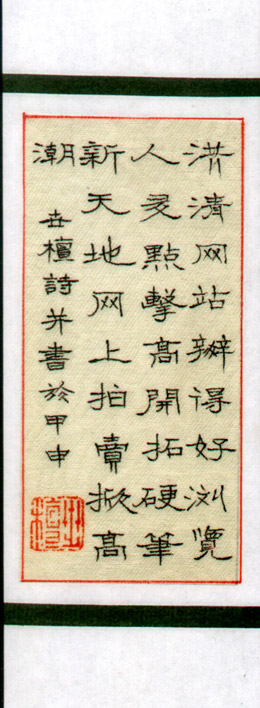 洪清网站辦得好浏覽
人多點擊高開拓硬筆
新天地网上拍賣掀高
潮
世檀詩并書於甲申